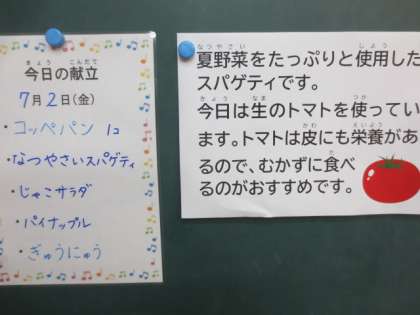 きょう こんだて
今日の献立
7月2日(金)
・コッペパン 1コ
・なつやさいスパゲティ
・じゃこサラダ
・パイナップル
・ぎゅうにゅう
なつやさい しよう
夏野菜をたっぷりと使用した
スパゲティです。
きょう なま つか
今日は生のトマトを使ってい
かわ えいよう
ます。トマトは皮にも栄養があ
た
るので、むかずに食べ
るのがおすすめです。